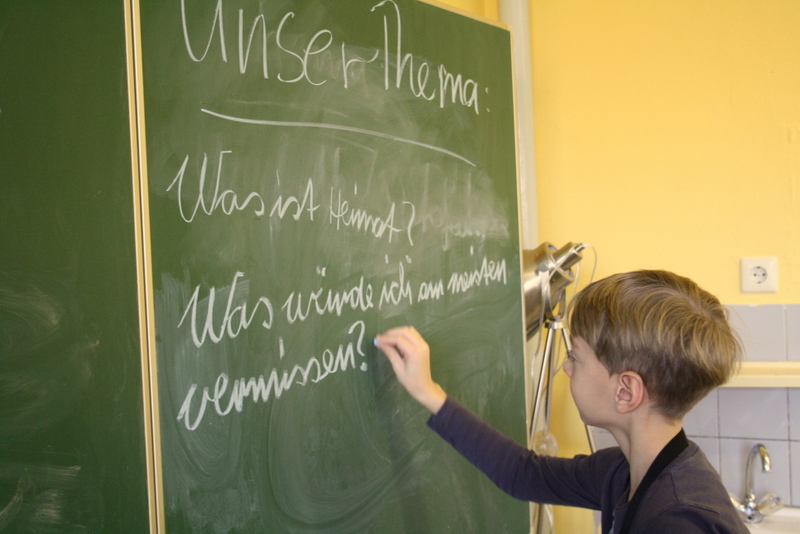 Unser Thema:
Was ist Heimat?
Was würde ich am meisten
vermissen?